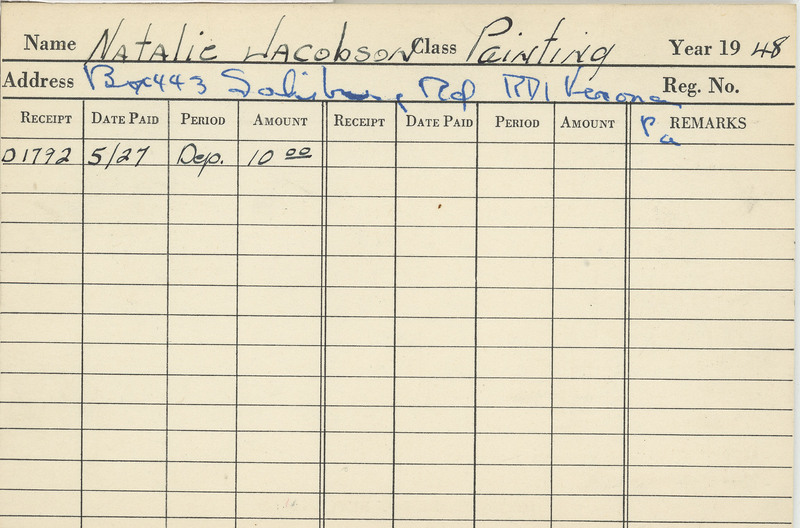 Name Natalie Jacobson Class Painting Year 19 48
Address Box 443 Rd RD1 Verona Reg. No.
Pa
RECEIPT DATE PAID PERIOD AMOUNT RECEIPT DATE PAID PERIOD AMOUNT REMARKS
D1792 5/27 Dep. 10 00